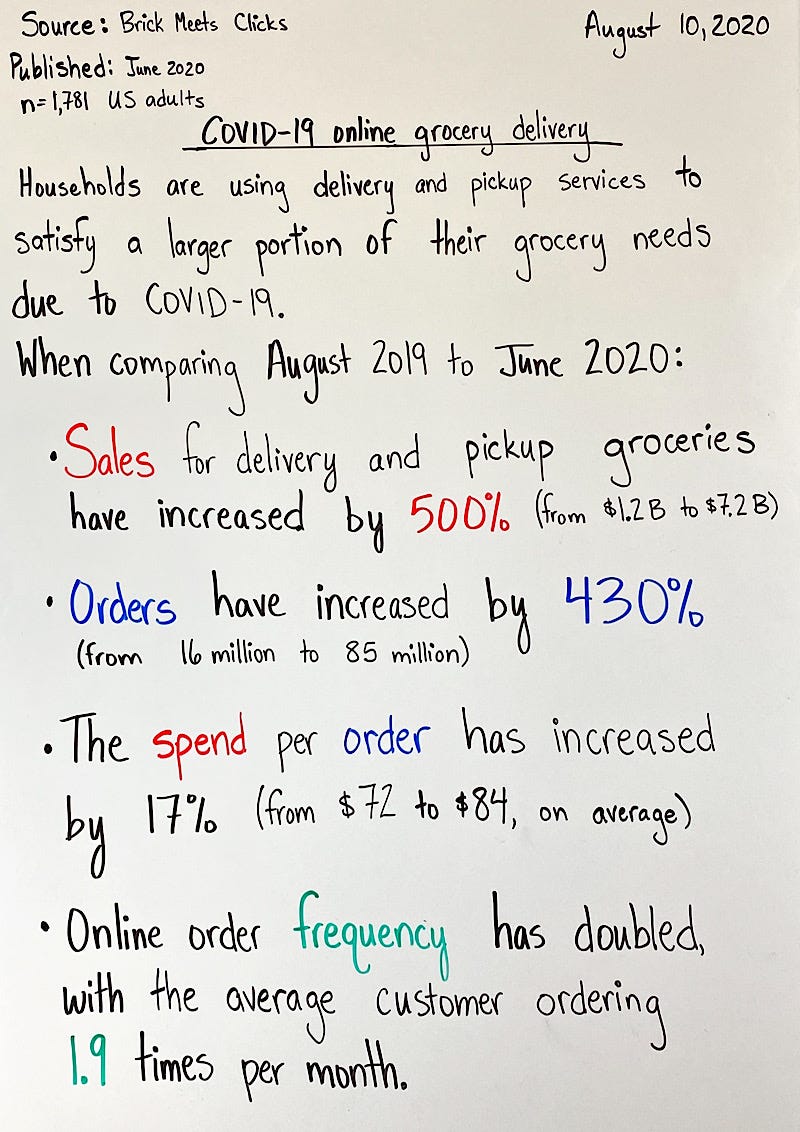 Source: Brick Meets Clicks
August 10, 2020
Published: June 2020
n=1,781 US adults
COVID-19 online grocery delivery
Households are using delivery and pickup services to
satisfy a larger portion of their grocery needs
due to COVID-19.
When comparing August 2019 to June 2020:
• Sales for delivery and pickup groceries
have increased by 500% (from $1.2B to $7.2B)
• Orders have increased by 430%
(from 16 million to 85 million)
• The spend per order has increased
by 17% (from $72 to $84, on average)
• Online order frequency has doubled,
with the average customer ordering
1.9 times per month.